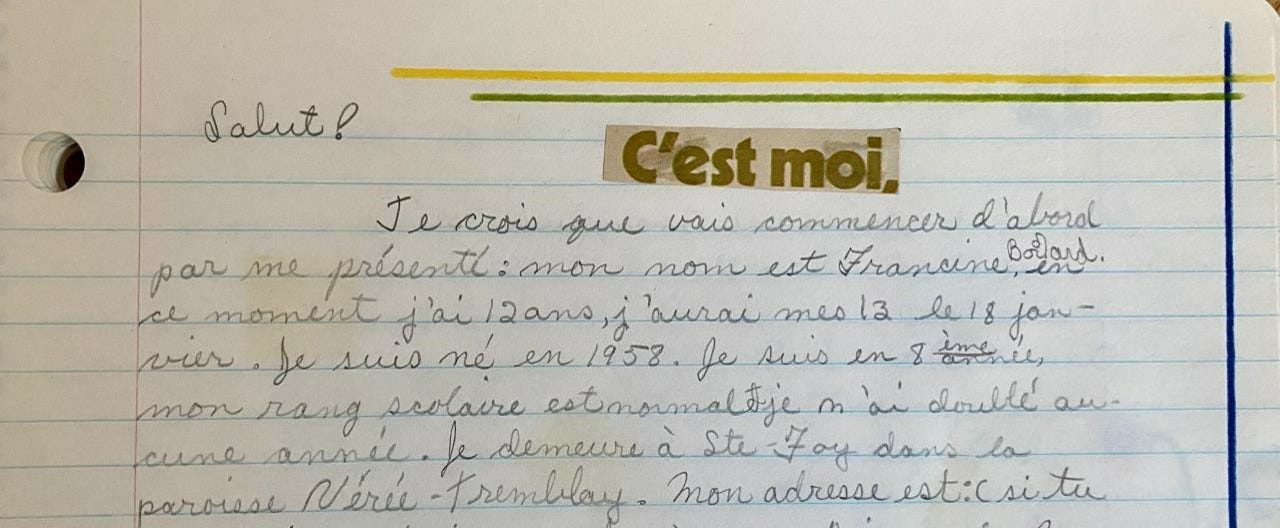 Salut!
C'est moi,
Je crois que vais commencer d'abord
par me présenté: mon nom est Francine Bolard, en
ce moment j'ai 12 ans, j'aurai mes 13 le 18 jan-
vier. Je suis né en 1958. Je suis en 8 ème année,
mon rang scolaire est normal je n'ai doublé au-
cune année. Je demeure à Ste-Foy dans la
paroisse Nérée-Tremblay. Mon adresse est:(si tu